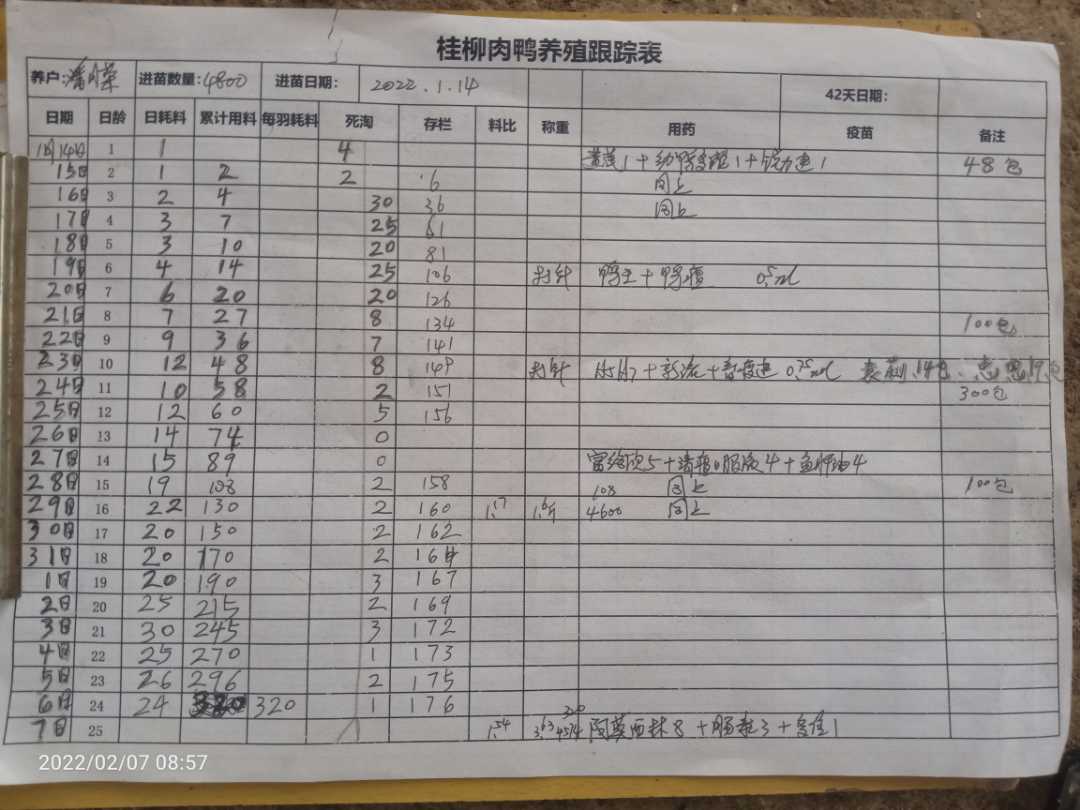 桂柳肉鸭养殖跟踪表
养户: 潘 荣 进苗数量: 4800 进苗日期: 2022.1.14 42天日期:
日期 日龄 日耗料 累计用料 每羽耗料 死淘 存栏 料比 称重 用药 疫苗 备注
1月14日 1 1 4 1 + 1 + 1 48包
15日 2 1 2 2 6 同上
16日 3 2 4 30 36 同上
17日 4 3 7 25 61
18日 5 3 10 20 81
19日 6 4 14 25 106 打针 0.5ml
20日 7 6 20 20 126
21日 8 7 27 8 134 100包
22日 9 9 36 7 141
23日 10 12 48 8 149 打针 H5H7 + 新流 + 0.75ml
24日 11 10 58 2 151 300包
25日 12 12 60 5 156
26日 13 14 74 0
27日 14 15 89 0 5 + 4 + 鱼肝油4
28日 15 19 108 2 158 108 同上 100包
29日 16 22 130 2 160 1.57 1.6斤 4600 同上
30日 17 20 150 2 162
31日 18 20 170 2 164
1日 19 20 190 3 167
2日 20 25 215 2 169
3日 21 30 245 3 172
4日 22 25 270 1 173
5日 23 26 296 2 175
6日 24 24 320 1 176
7日 25 1.54 3.63 4574 阿莫西林8 + 肠 3 + 1
2022/02/07 08:57